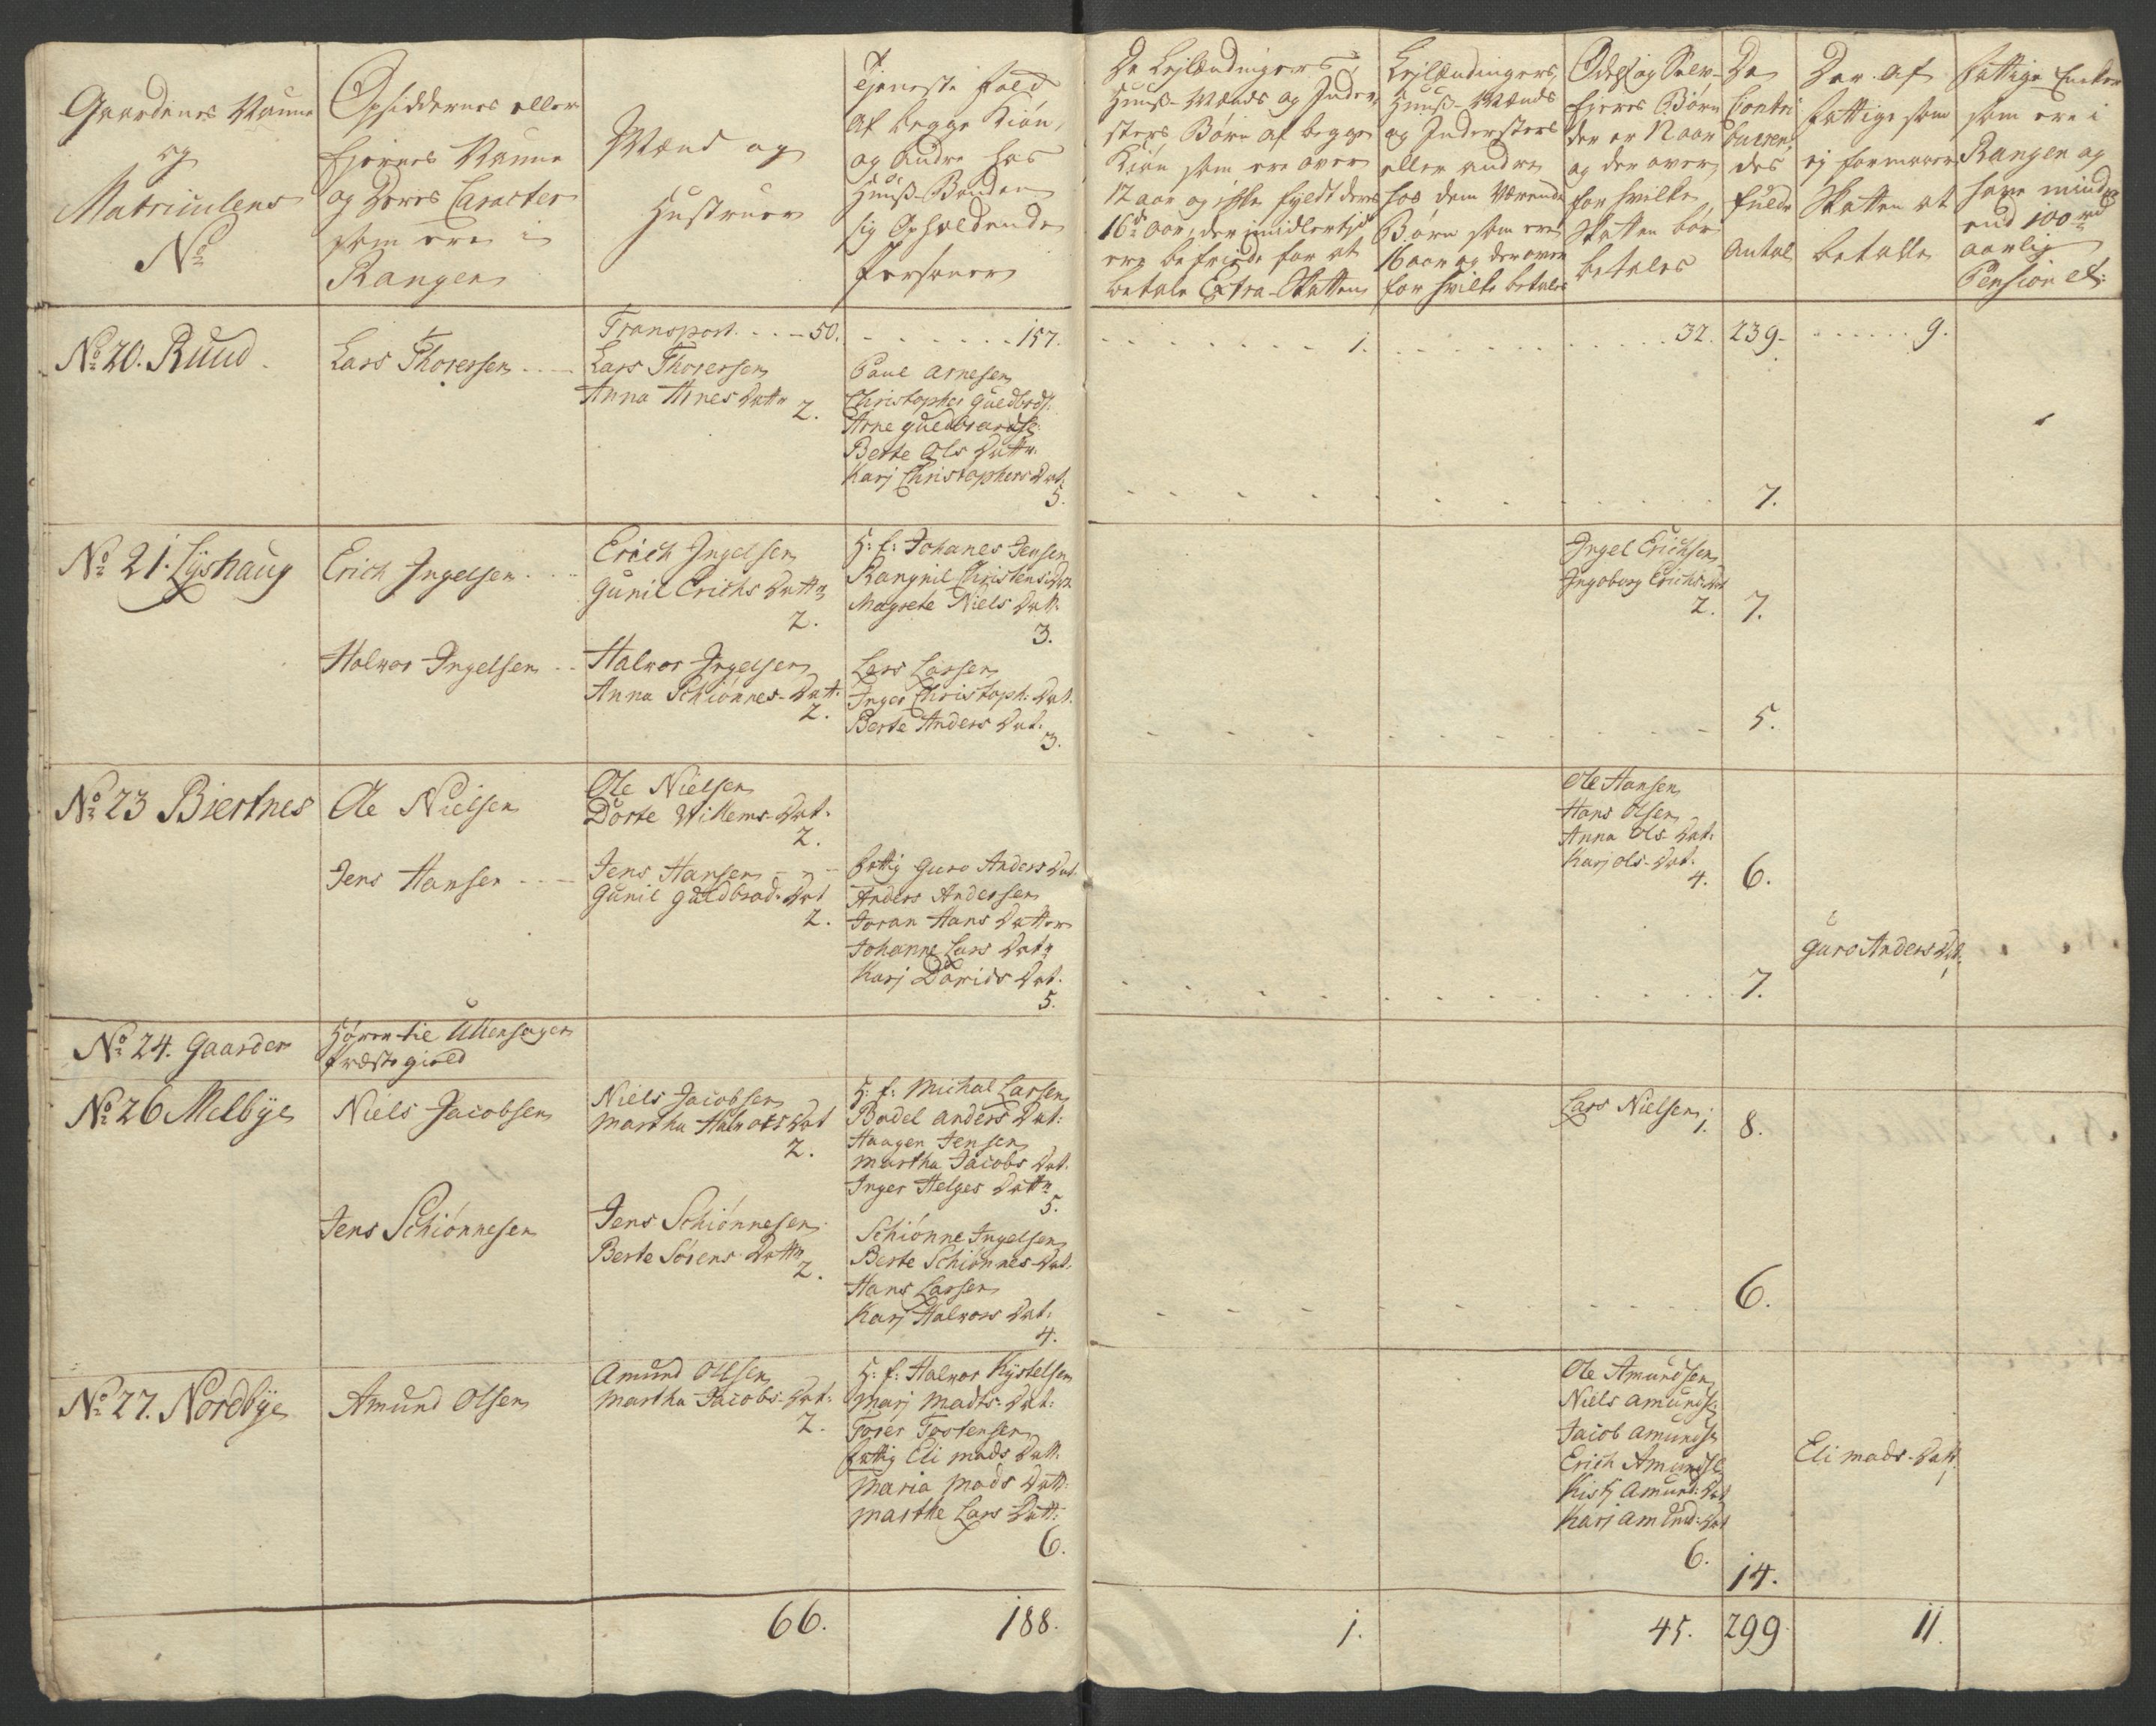 Gaardenes Naune
og
Matriculens
No
Opsiddernes eller
Ejernes Naune
og Deres Caracter
som ere i
Rangen
Mænd og
Hustruer
Tjeneste Folk
af begge Kiøn,
og Andre hos
Huuß-Bonden
sig Opholdende
Personer
De Lejlændingers,
Huuß-Mænds og Inder-
sters Børn af begge
Kiøn som ere over
12 aar og ikke fyldt deres
16de aar, der imidlertid
ere befriede for at
betale Extra-Skatten
Lejlændingers,
Huuß-Mænds
og Indersters
eller andre
hos dem værende
Børn som ere
16 aar og derover
for hvilke betales
Odels og Selv-
Ejeres Børn
der er 12 aar
og der over,
for hvilke
Skatten bør
betales
De
Contri-
bueren-
des
fulde
Antal
Der af
fattige som
ej formaaer
Skatten at
betalle
Fattige Enker
som ere i
Rangen og
have mindre
end 100 rd
aarlig
Pension etc:
Transport . . . 50. . . . . . . . 157. . . . . . . . 1. . . . . . . . 32. 239. . . . . . . 9.
No 20. Ruud
Lars Thoressen . . .
Lars Thoressen
Anna Arnes Dattr 2.
Paul Arnesen
Christopher Guldbrds:
Arne Guldbrandse:
Berte Ols Dattr.
Karj Christophers Dat.
5.
7.
No 21. Lÿshaug
Erich Ingelsen . . .
Erich Ingelsen
Gunil Erichs Dattr
2.
H: f: Johanes Jensen
Rangnil Christens Dat
Magrete Niels Datt.
3.
Ingel Erichsen
Ingeborg Erichs Dat
2. 7.
Halvor Ingelsen . .
Halvor Ingelsen
Anna Schiønnes-Datt.
2.
Lars Larsen
Inger Christoph: Dat.
Berte Anders Dat:
3.
5.
No 23 Biertnes
Ole Nielsen
Ole Nielsen
Dorte Willems-Dat.
2.
Ole Hansen
Hans Olsen
Anna Ols-Dat:
Karj Ols-Dat.
4. 6.
Jens Hansen . . .
Jens Hansen
Gunil Guldbrad-Dat
2.
fattig Guro Anders Dat.
Anders Andersen
Joran Hans Datter
Johanne Lars Datr
Karj Davids Dat.
5.
7.
Guro Anders Dat.
1
No 24. Gaarder
Hører til Ullensager
Præste gield
No 26 Melbÿe
Niels Jacobsen
Niels Jacobsen
Martha Halvors Dat
2.
H: f: Michal Larsen
Bodel Anders Dat:
Haagen Jensen
Martha Jacobs Dat.
Inger Helges Dattr
5.
Lars Nielsen
1. 8.
Jens Schiønnesen
Jens Schiønnesen
Berte Sørens Dattr
2.
Schiønne Ingelsen
Berte Schiønnes-Dat.
Hans Larsen
Karj Halvors Dat.
4.
6.
No 27. Nordbÿe
Amund Olsen
Amund Ollsen
Martha Jacobs-Dat:
2.
H: f: Halvor Kÿstelsen
Marj Madts-Dat:
Torer Tostensen
fattig Eli Mads Datt.
Maria Mads Datt:
Marthe Lars Datt:
6.
Ole Amundsen
Niels Amundse:
Jacob Amundse
Erich Amundse
Kisti Amund: Dat
Karj Amund: Dat
6.
14.
Eli Mads-Datt.
1
66. 188. 1. 45. 299. 11.